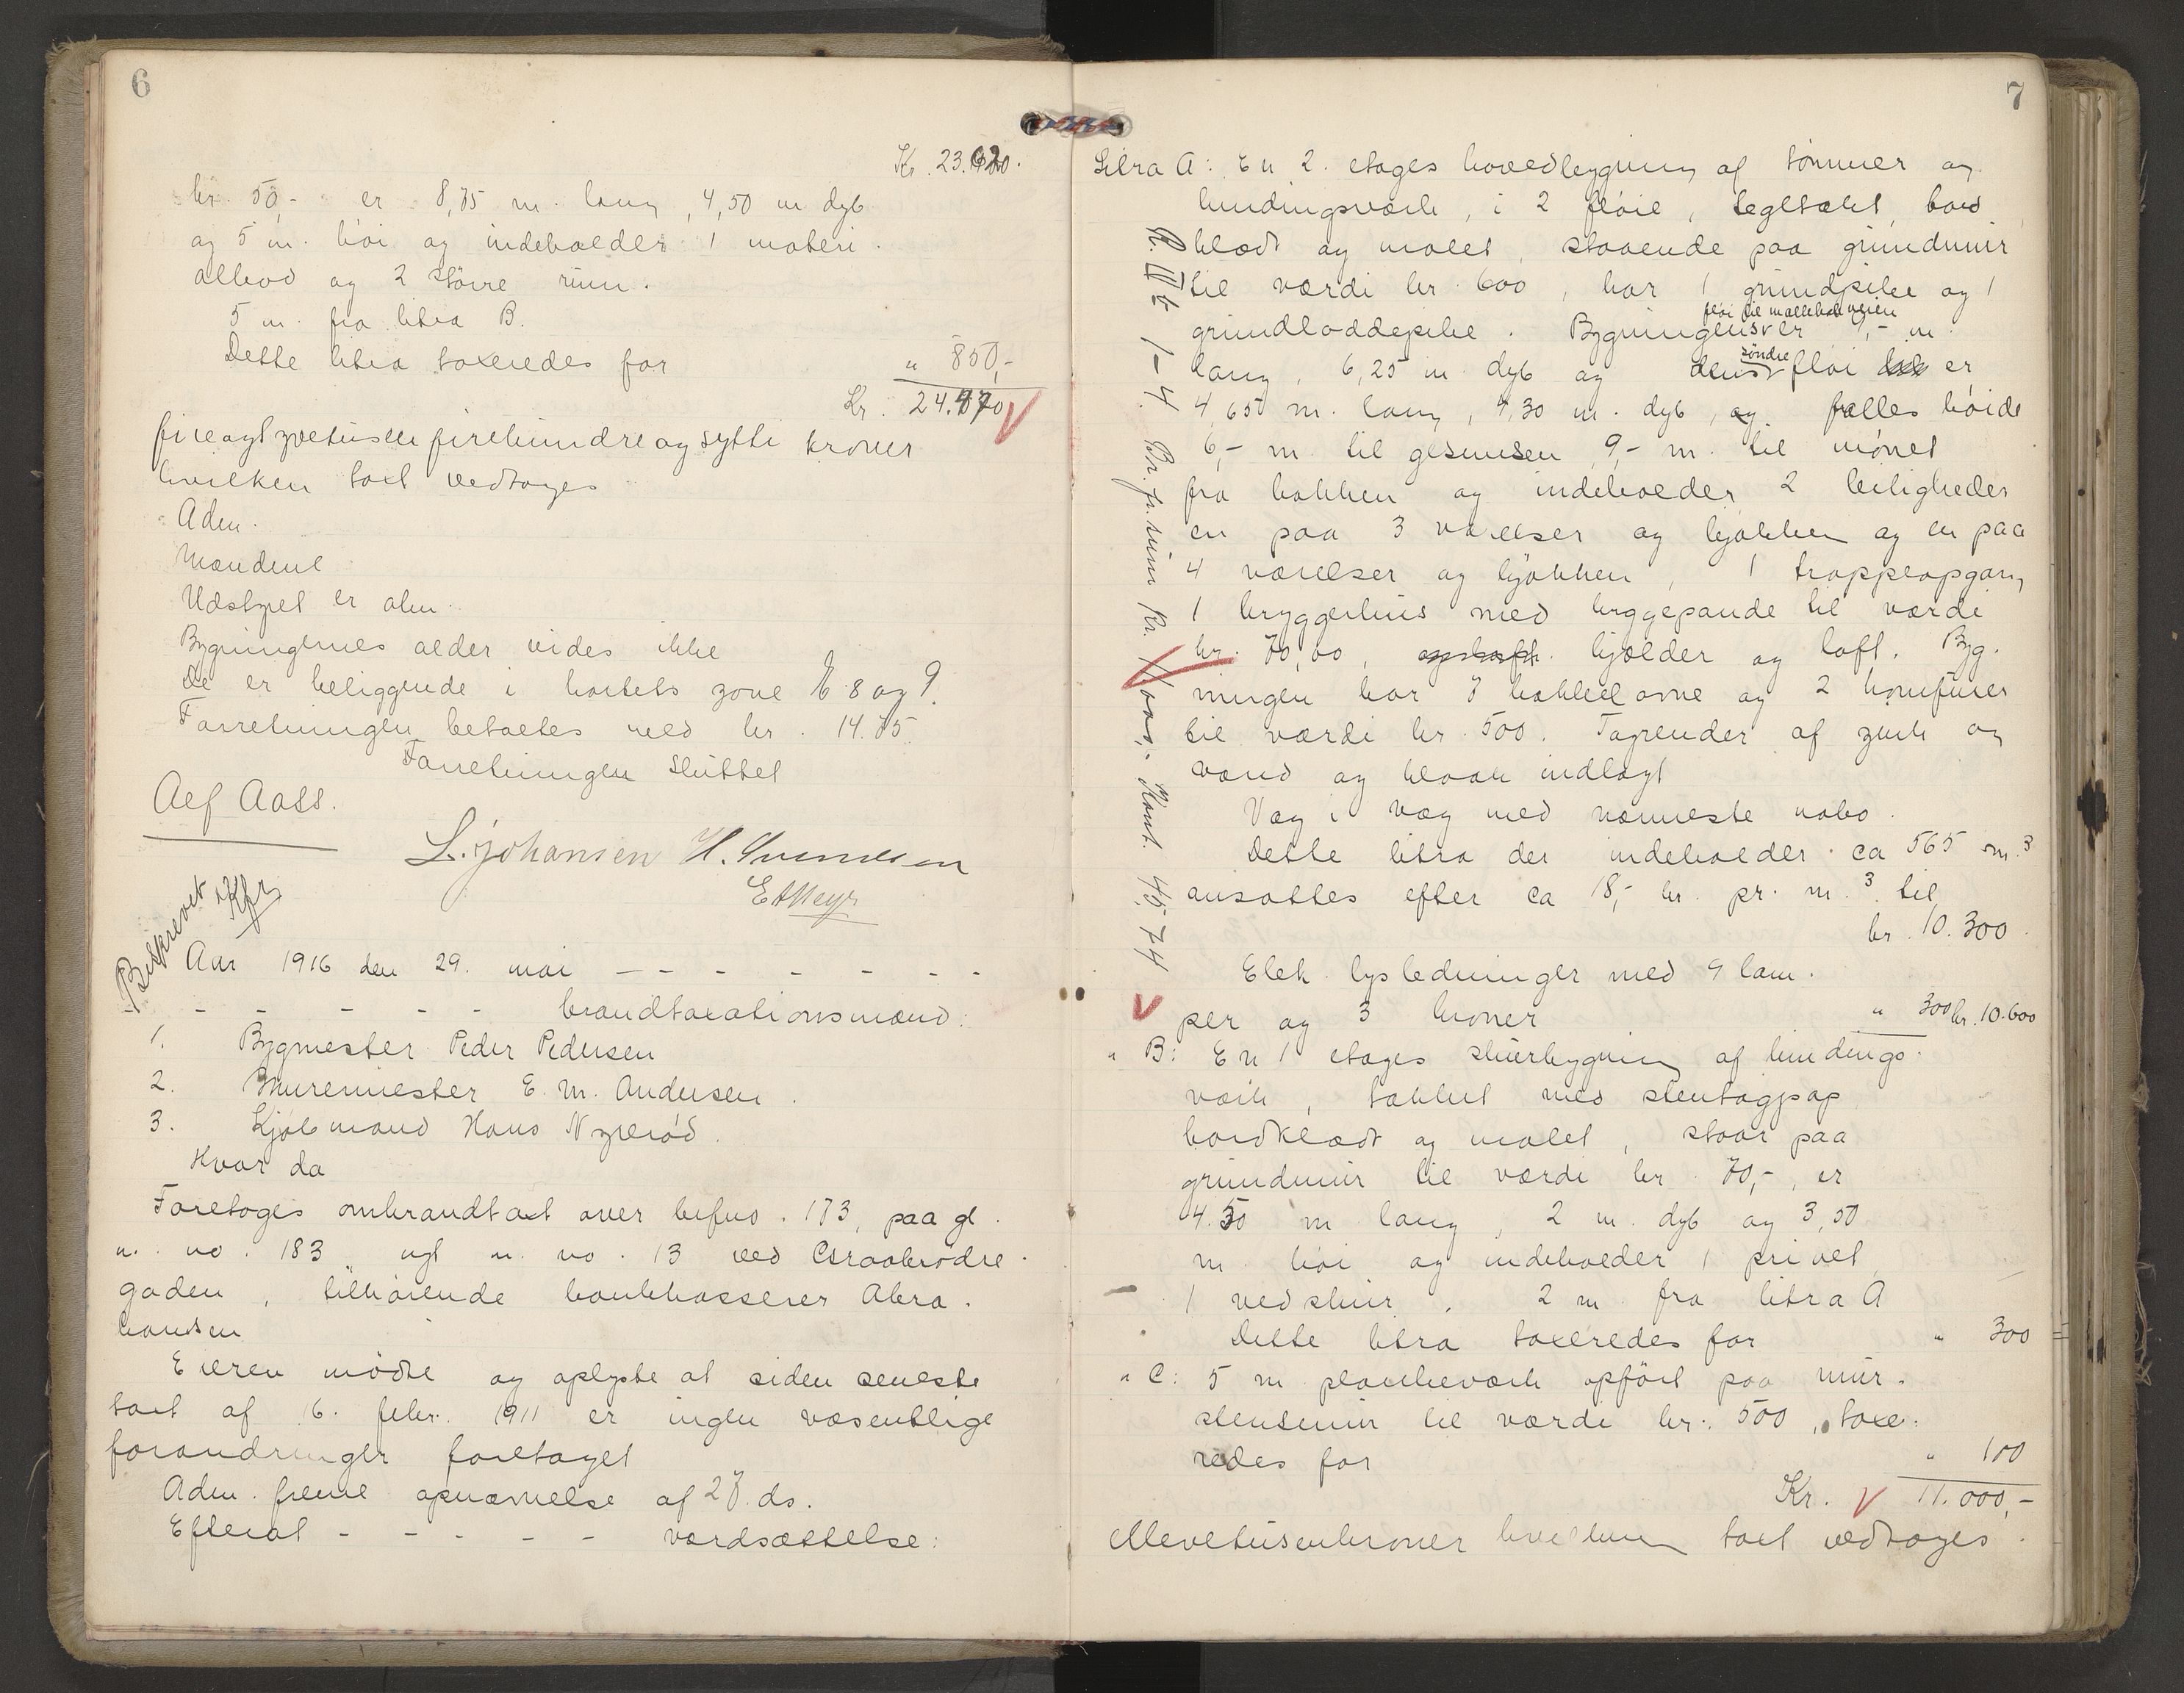 6
Kr. 23.620.
kr. 50,- er 8,75 m. lang, 4,50 m dyb
og 5 m. høi og indeholder 1 materi
albod og 2 større rum.
5 m. fra litra B.
Dette litra taxeredes for " 850,-
Kr. 24.470
fireogtyvetusen firehundreogsytti kroner
hvilken taxt vedtoges
Adm.
Mændene
Udstyret er alm.
Bygningernes alder vides ikke
De er beliggende i kartets zone E 8 og 9.
Forretningen betaltes med kr. 14.75
Forretningen sluttet
Alf Aass.
L. Johansen H. Svendsen
E A Meyr
Beskrevet
Kfr
Aar 1916 den 29. mai - - - - - - -
- - - - - - brandtaxationsmænd:
1. Bygmester Peder Pedersen
2. Murermester E. M. Andersen.
3. Kjøbmand Hans Nyrerød.
Hvor da
Foretoges ombrandtaxt over bufno. 173, paa gl.
n. no. 183 nyt n. no. 13 ved Graabrødre-
gaden, tilhørende bankkasserer Abra-
hamsen
Eieren mødte og oplyste at siden seneste
taxt af 16. febr. 1911 er ingen væsentlige
forandringer foretaget
Adm. freml opnævnelse af 27. ds.
Efterat - - - - - værdsættelse:
7
Litra A: En 2. etages hovedbygning af tømmer og
bindingsværk, i 2 fløie, tegltækt, bord
klædt og malet, staaende paa grundmur
til værdi kr. 600, har 1 grundpibe og 1
fløi til møllebakveien
grundloddepibe. Bygningens er 9,- m.
søndre
lang, 6,25 m. dyb og dens fløi er
4,65 m. lang, 4,30 m. dyb, og fælles høide
6,- m til gesimsen 9,- m. til mønet
fra bakken og indeholder 2 leiligheder
en paa 3 værelser og kjøkken og en paa
4 værelser og kjøkken, 1 trappeopgang
1 bryggerhus med bryggepande til værdi
kr. 70,00, kjælder og loft. Byg-
ningen har 7 kakkelovne og 2 komfurer
til værdi kr. 500. Tagrender af zink og
vand og kloak indlagt
Væg i væg med nærmeste nabo.
Dette litra der indeholder ca 565 m.3
ansattes efter ca 18,- kr. pr. m.3 til
kr. 10.300.
Elek. lysledninger med 9 lam-
per og 3 kroner " 300 kr. 10.600
" B: En 1 etages skurbygning af bindings-
værk, tækket med stentagpap
bordklædt og malet, staar paa
grundmur til værdi kr. 70,-, er
4.50 m lang, 2 m. dyb og 3,50
m høi og indeholder 1 privet
1 vedskur. 2 m fra litra A
Dette litra taxeredes for " 300
" C: 5 m plankeværk opført paa mur-
stensmur til værdi kr. 500, taxe-
redes for " 100
Kr. 11.000,-
ellevetusenkroner hvilken taxt vedtoges.
R. III b 1-4. Br. fr. sum Kr. 11000,- Kont. 45,74